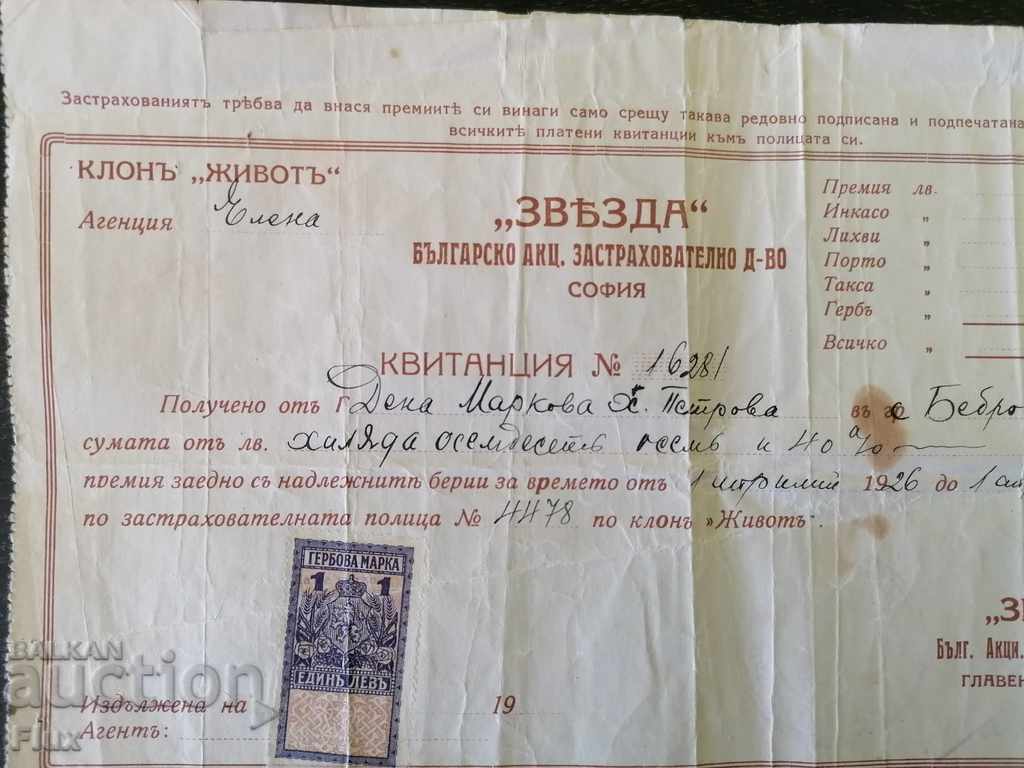 Застрахованиятъ трѣбва да внася премиитѣ си винаги само срещу такава редовно подписана и подпечатана
всичкитѣ платени квитанции къмъ полицата си.
КЛОНЪ „ЖИВОТЪ“
Агенция Елена
„ЗВѢЗДА“
БЪЛГАРСКО АКЦ. ЗАСТРАХОВАТЕЛНО Д-ВО
СОФИЯ
Премия лв.
Инкасо „
Лихви „
Порто „
Такса „
Гербъ „
Всичко „
КВИТАНЦИЯ № 16281
Получено отъ Г Дена Маркова х. Петрова въ с Бебро
сумата отъ лв. хиляда осемдесеть осемь и 40 %
премия заедно съ надлежнитѣ берии за времето отъ 1 априлий 1926 до 1 ап
по застрахователната полица № 4478 по клонъ „Животъ“.
ГЕРБОВА МАРКА
1 1
ЕДИНЪ ЛЕВЪ
„ЗВ
Бълг. Акци.
ГЛАВЕН
Издължена на 19
Агентъ:
BALKAN
auction
Flux